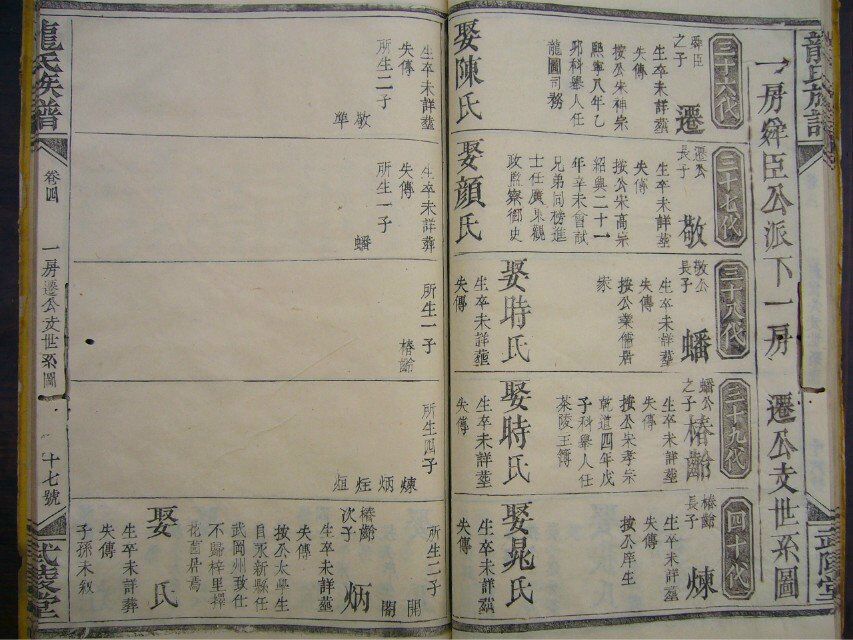 龍氏族譜
武陵堂
一房舜臣公派下一房 遷公支世系圖
三十六代
舜臣
之子
遷
生卒未詳塟
失傳
按公宋神宗
熙寧八年乙
卯科舉人任
龍圖司務
娶陳氏
生卒未詳塟
失傳
所生二子
敬
準
三十七代
遷公
長子
敬
生卒未詳塟
失傳
按公宋高宗
紹興二十一
年辛未會試
兄弟同榜進
士任廣東觀
政監察御史
娶顏氏
生卒未詳葬
失傳
所生一子
蟠
三十八代
敬公
長子
蟠
生卒未詳塟
失傳
按公業儒居
家
娶時氏
生卒未詳塟
失傳
所生一子
椿齡
三十九代
蟠公
之子
椿齡
生卒未詳塟
失傳
按公宋孝宗
乾道四年戊
子科舉人任
茶陵王簿
娶時氏
生卒未詳塟
失傳
所生四子
煉
炳
烓
烜
四十代
椿齡
長子
煉
生卒未詳塟
失傳
按公庠生
娶晁氏
生卒未詳塟
失傳
所生二子
開
閣
椿齡
次子
炳
按公太學生
目永新縣任
武岡州致仕
不歸梓里擇
花園居焉
娶 氏
生卒未詳葬
失傳
子孫未敘
龍氏族譜
卷四
一房遷公支世系圖
十七號
武陵堂